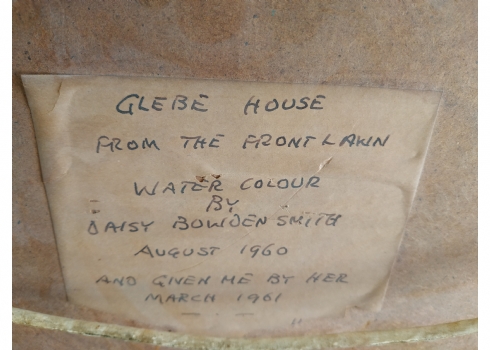 GLEBE HOUSE
FROM THE FRONT LAWN
WATER COLOUR
BY
DAISY BOWDEN SMITH
AUGUST 1960
AND GIVEN ME BY HER
MARCH 1961